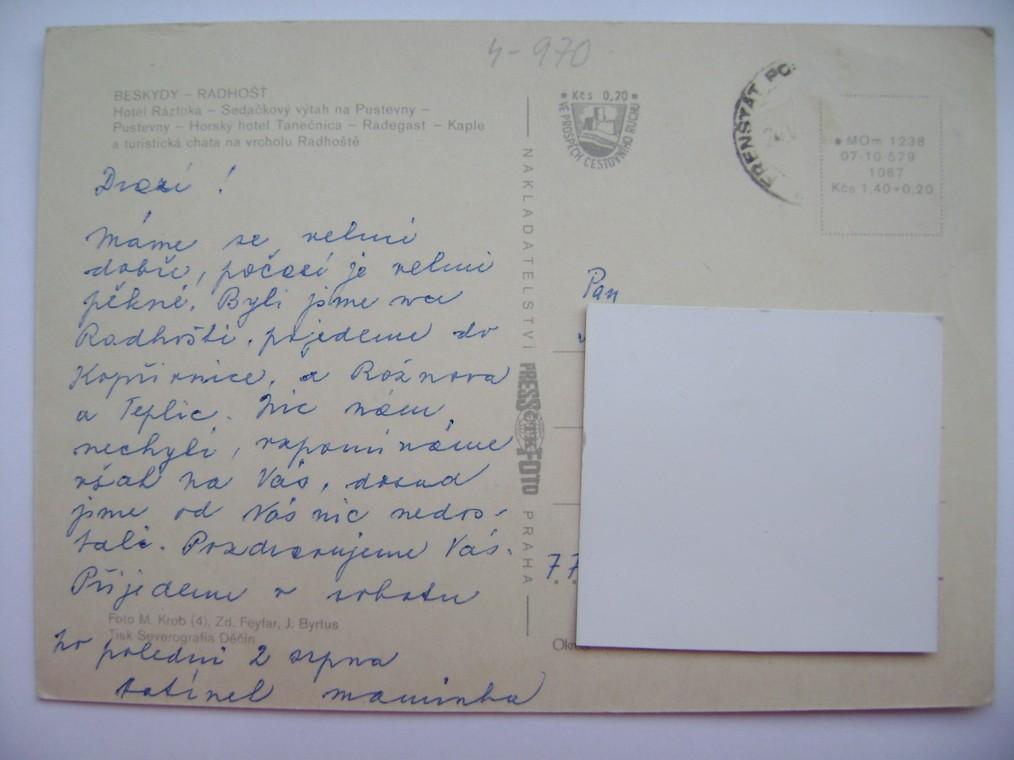 4-970
BESKYDY – RADHOŠŤ
Hotel Ráztoka – Sedačkový výtah na Pustevny –
Pustevny – Horský hotel Tanečnica – Radegast – Kaple
a turistická chata na vrcholu Radhoště
Drazí !
Máme se velmi
dobře, počasí je velmi
pěkné. Byli jsme na
Radhošti. pojedeme do
Kopřivnice, a Rožnova
a Teplic. Nic nám
nechybí, vzpomínáme
však na Vás, dosud
jsme od Vás nic nedos-
tali. Pozdravujeme Vás.
Přijedeme v sobotu
Foto M. Krob (4), Zd. Feyfar, J. Byrtus
Tisk Severografia Děčín
po polední 2 srpna
tatínek maminka
NAKLADATELSTVÍ
PRESSFOTO
ČTK
PRAHA
* Kčs 0,20 *
VE PROSPĚCH CESTOVNÍHO RUCHU
FRENŠTÁT PO
* MOm 1238
07-10-579
1087
Kčs 1,40+0,20
Pan
7 7
Okre